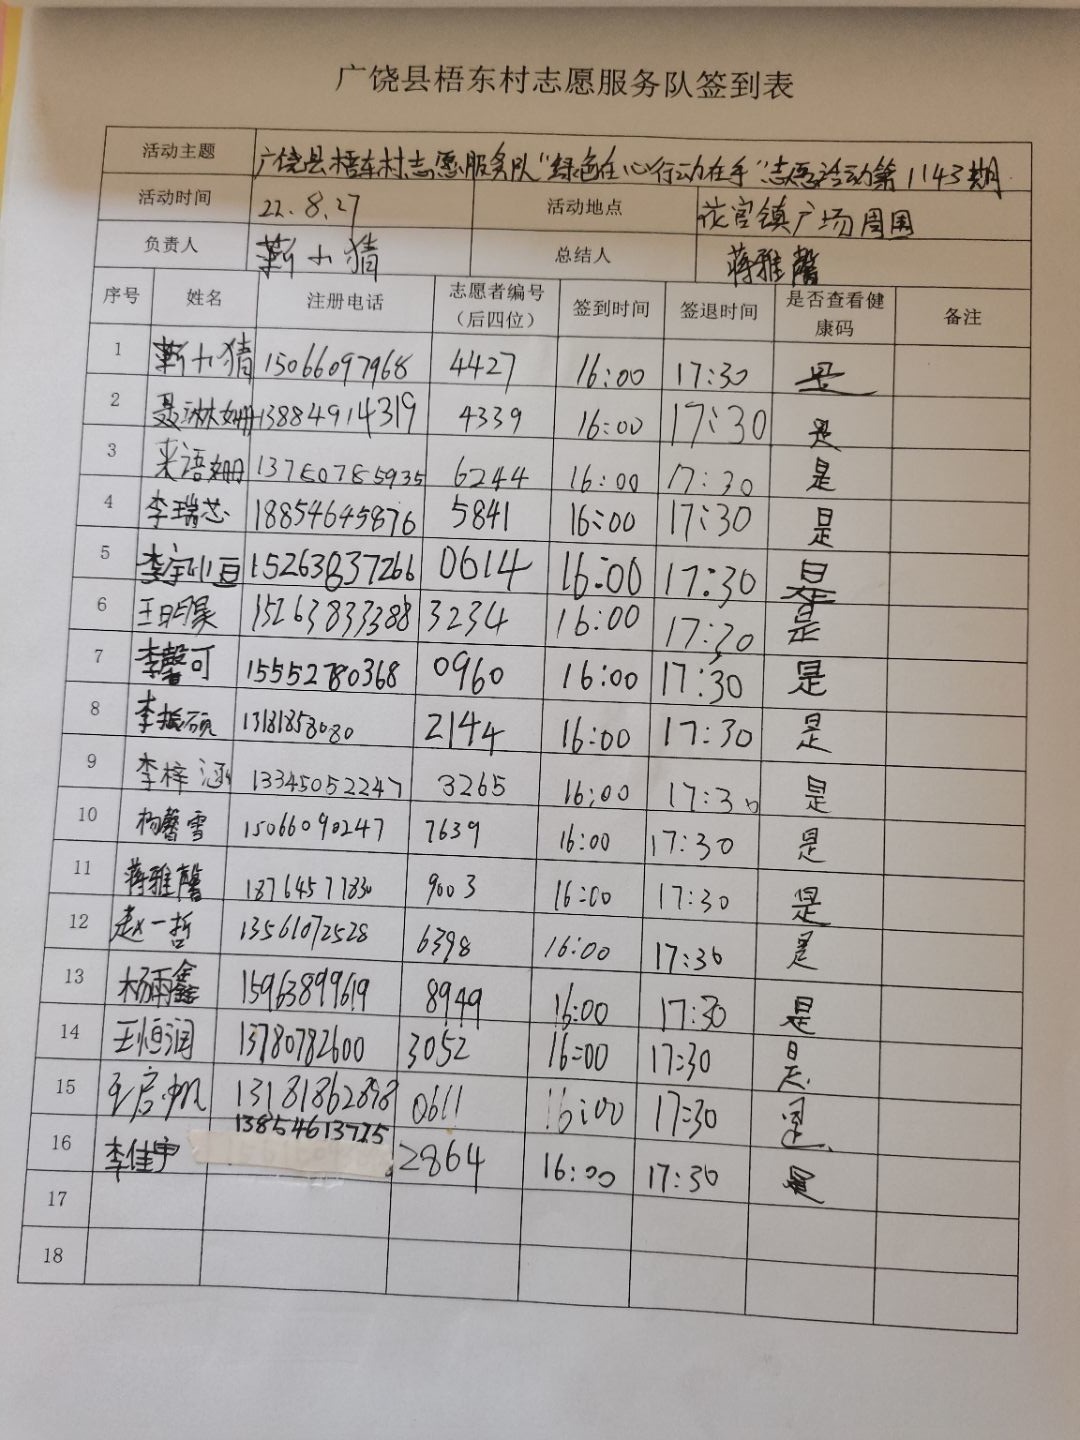 广饶县梧东村志愿服务队签到表
活动主题 广饶县梧东村志愿服务队“绿色在心行动在手”志愿活动第1143期
活动时间 22.8.27 活动地点 花官镇广场周围
负责人 靳小猜 总结人 蒋雅馨
序号 姓名 注册电话 志愿者编号（后四位） 签到时间 签退时间 是否查看健康码 备注
1 靳小猜 15066097968 4427 16:00 17:30 是
2 聂琳姗 13884914319 4339 16:00 17:30 是
3 来语姗 13780785935 6244 16:00 17:30 是
4 李瑞芯 18854645876 5841 16:00 17:30 是
5 李宝小豆 15263837266 0614 16:00 17:30 是
6 15263833388 3234 16:00 17:30 是
7 李馨可 15552780368 0960 16:00 17:30 是
8 李振硕 13181858080 2144 16:00 17:30 是
9 李梓涵 13345052247 3265 16:00 17:30 是
10 杨馨雪 15066090247 7639 16:00 17:30 是
11 蒋雅馨 18764577830 9003 16:00 17:30 是
12 赵一哲 13561072528 6398 16:00 17:30 是
13 杨雨鑫 15963899619 8949 16:00 17:30 是
14 王恒润 13780782600 3052 16:00 17:30 是
15 王启帆 13181862898 0611 16:00 17:30 是
16 李佳宇 13854613725 2864 16:00 17:30 是
17
18